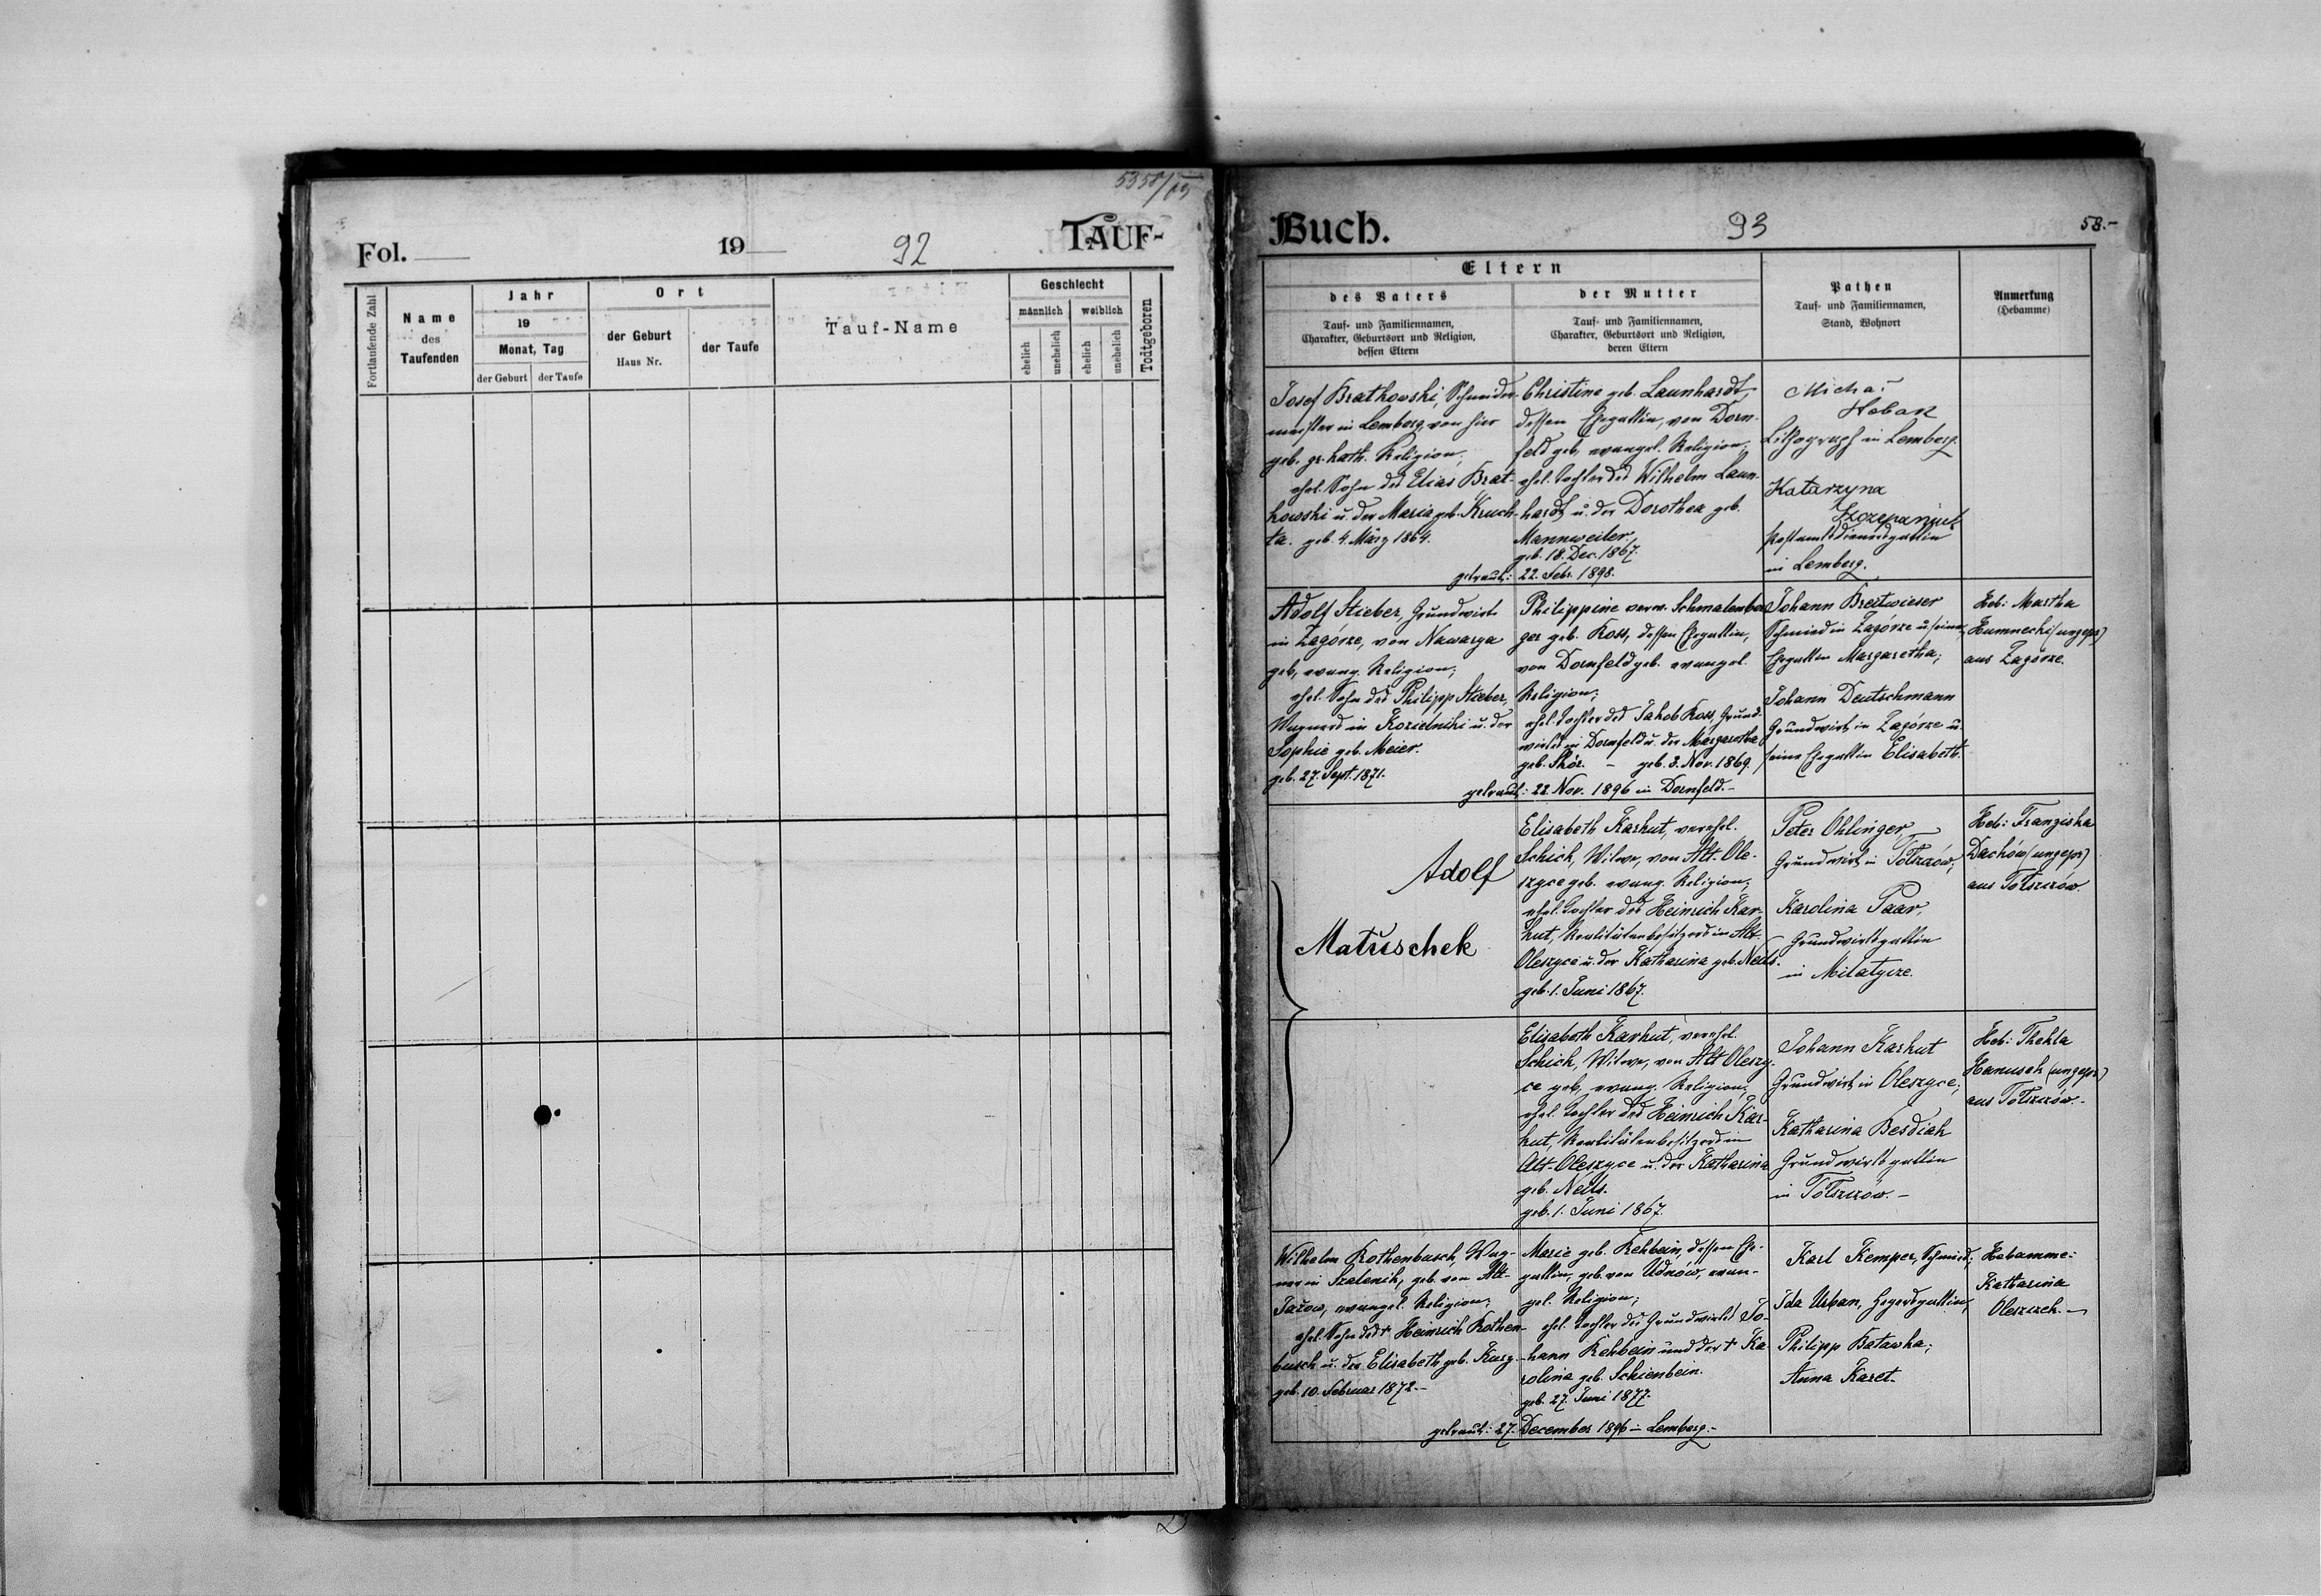 5358/03
Fol.
19
92
TAUF-
Fortlaufende Zahl
Name
des
Taufenden
Jahr
19
Monat, Tag
der Geburt
der Taufe
Ort
der Geburt
Haus Nr.
der Taufe
Tauf-Name
Geschlecht
männlich
weiblich
ehelich
unehelich
ehelich
unehelich
Todtgeboren
Buch.
93
58.-
Eltern
des Vaters
Tauf- und Familiennamen,
Charakter, Geburtsort und Religion,
dessen Eltern
der Mutter
Tauf- und Familiennamen,
Charakter, Geburtsort und Religion,
deren Eltern
Pathen
Tauf- und Familiennamen,
Stand, Wohnort
Anmerkung
(Hebamme)
Josef Bratkowski, Schneider-
meister in Lemberg, von hier
geb. gr. kath. Religion;
ehel. Sohn des Elias Brat-
kowski u. der Maria geb. Kruch-
ta. geb. 4. März 1864.
Christine geb. Launhardt,
dessen Ehegattin, von Dorn-
feld geb., evangel. Religion;
ehel. Tochter des Wilhelm Laun-
hardt u. der Dorothea geb.
Mannweiler,
geb. 18. Dec. 1867.
getraut: 22. Febr. 1898.
Lithograph in Lemberg.
Katarzyna
Postamtsdienersgattin
in Lemberg.
Adolf Stieber, Grundwirt
in Zagórze, von Nawarya
geb., evang. Religion;
ehel. Sohn des Philipp Stieber,
Wagners in Kozielniki u. der
Sophie geb. Meier.
geb. 27. Sept. 1871.
Philippine verw. Schmalenber
ger geb. Koss, dessen Ehegattin,
von Dornfeld geb. evangel.
Religion;
ehel. Tochter des Jakob Koss, Grund-
wirts in Dornfeld u. der Margaretha
geb. - geb. 3. Nov. 1869.
getraut: 22. Nov. 1896 in Dornfeld.-
Johann Breitwieser
Schmied in Zagórze u. seine
Ehegattin Margaretha;
Johann Deutschmann
Grundwirt in Zagórze u.
seine Ehegattin Elisabeth.
Heb: Martha
Humnecki (ungepr)
aus Zagórze.
Adolf
Matuschek
Elisabeth Karhut, verehel.
Schick, Witwe, von Alt-Ole-
szyce geb. evang. Religion;
ehel. Tochter des Heinrich Kar-
hut, Realitätenbesitzers in Alt-
Oleszyce u. der Katharina geb. Neils.
geb. 1. Juni 1867.
Peter Ohlinger,
Grundwirt in Tołszczów;
Karolina Paar,
Grundwirtsgattin
in Milatycze.
Heb: Franziska
Dachów (ungepr)
aus Tołszczów.
Elisabeth Karhut, verehel.
Schick, Witwe, von Alt Oleszy-
ce geb., evang. Religion,
ehel. Tochter des Heinrich Kar-
hut, Realitätenbesitzers in
Alt-Oleszyce u. der Katharina
geb. Neils.
geb. 1. Juni 1867.
Johann Karhut
Grundwirt in Oleszyce;
Katharina Besdiak
Grundwirtsgattin
in Tołszczów.-
Heb: Thekla
Hanusch (ungepr)
aus Tołszczów.-
Wilhelm Rothenbusch, Wag-
ner in Szalenik, geb. von Alt-
Jażow, evangel. Religion;
ehel. Sohn des † Heinrich Rothen-
busch u. der Elisabeth geb. Kurz.-
geb. 10. Februar 1872.-
Marie geb. Rehbein, dessen Ehe-
gattin, geb. von Udnów, evan-
gel. Religion;
ehel. Tochter des Grundwirts Jo-
hann Rehbein und der † Ka-
rolina geb. Schienbein.
geb. 27. Juni 1877.
getraut: 27. December 1896 in Lemberg.-
Karl Kemper, Schmied;
Ida Urban, Hegersgattin;
Philipp Batawka;
Anna Karet.
Hebamme:
Katharina
Oleszczek.-